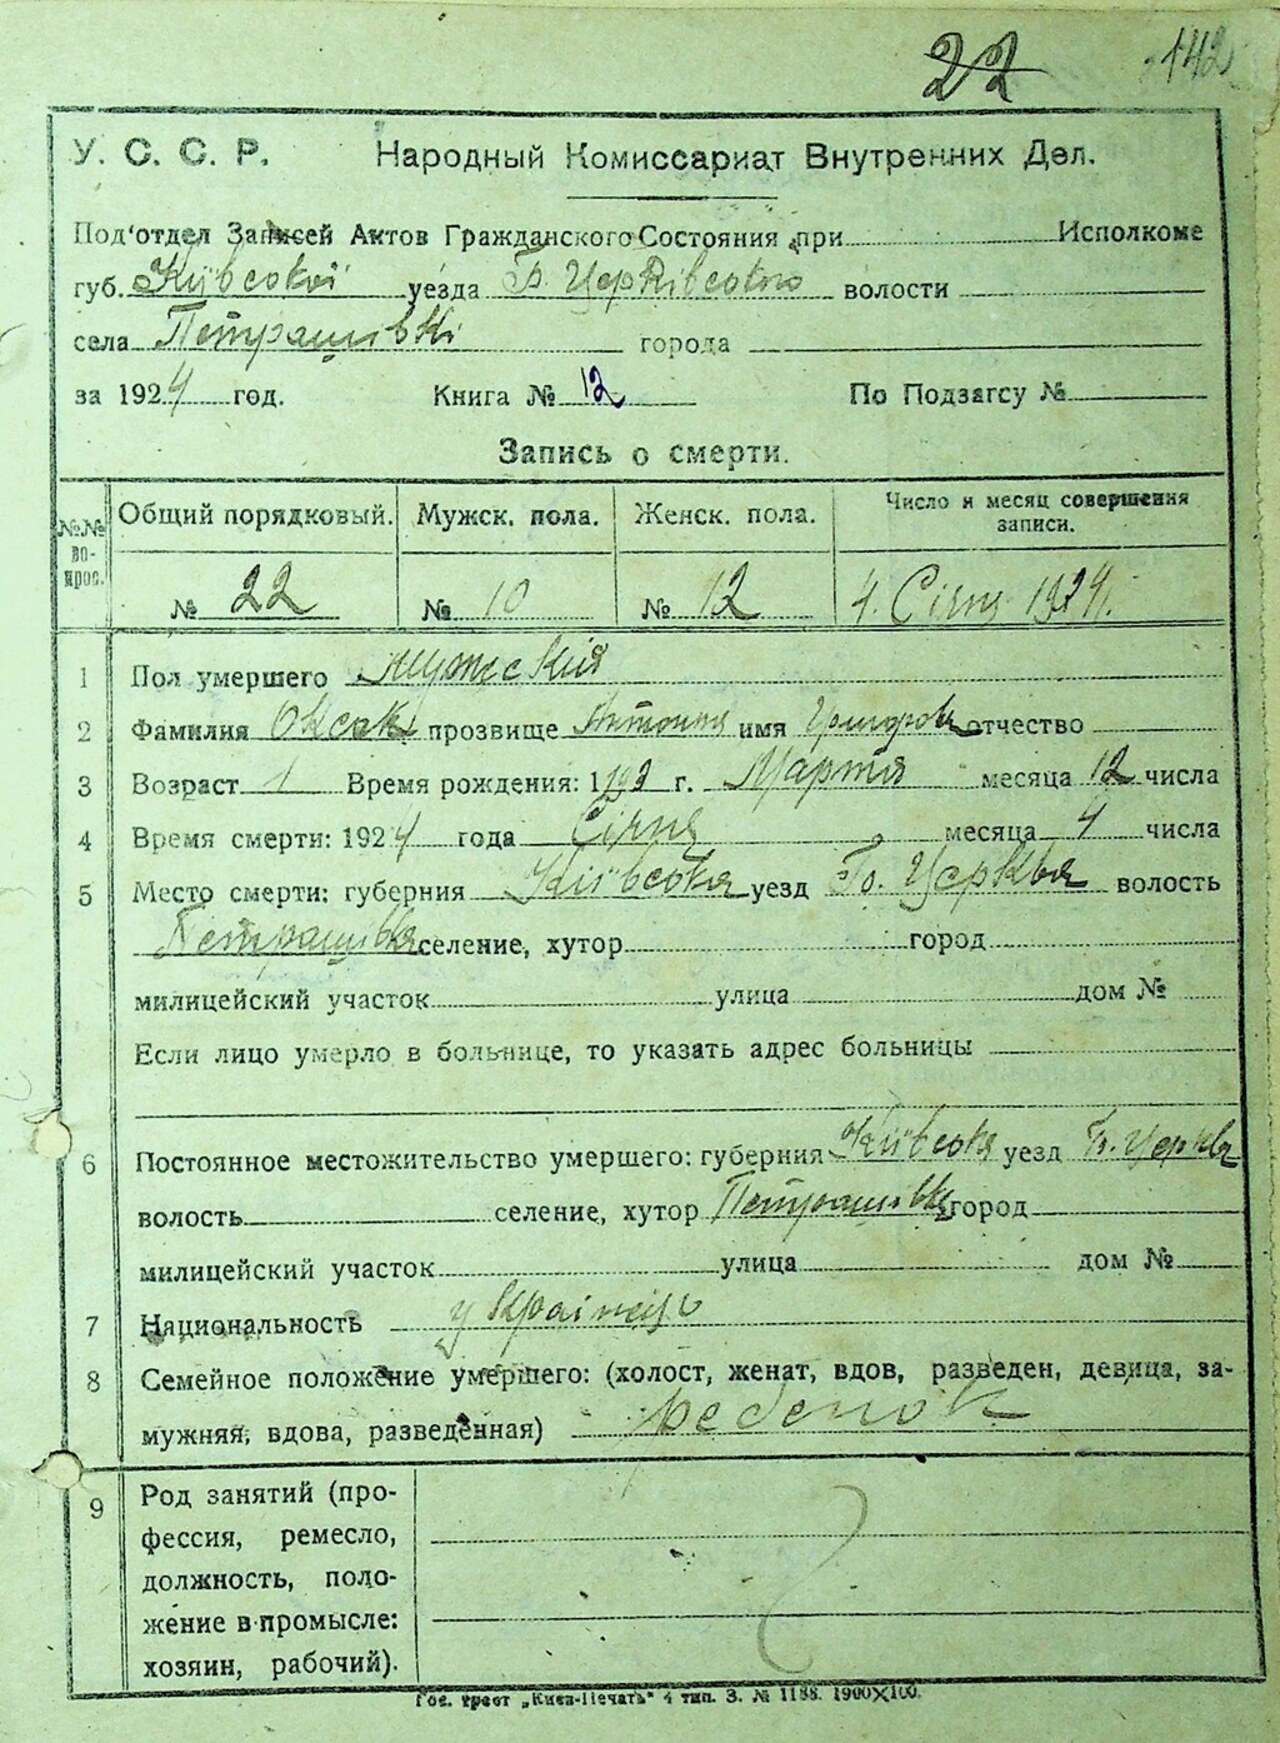 22 142
У. С. С. Р. Народный Комиссариат Внутренних Дел.
Под'отдел Записей Актов Гражданского Состояния при Исполкоме
губ. Київської уезда Б. Церківського волости
села Петрашівкі города
за 1924 год. Книга № 12 По Подзагсу №
Запись о смерти.
№№ во-прос. Общий порядковый. Мужск. пола. Женск. пола. Число и месяц совершения записи.
№ 22 № 10 № 12 4. Січня 1924.
1 Пол умершего Мужския
2 Фамилия прозвище Антонія имя Григоров отчество
3 Возраст 1 Время рождения: 1923 г. Марта месяца 12 числа
4 Время смерти: 1924 года Січня месяца 4 числа
5 Место смерти: губерния Київська уезд Церква волость
Петрашівка селение, хутор город
милицейский участок улица дом №
Если лицо умерло в больнице, то указать адрес больницы
6 Постоянное местожительство умершего: губерния Київська уезд Б. Церква
волость селение, хутор Петрашівка город
милицейский участок улица дом №
7 Национальность
8 Семейное положение умершего: (холост, женат, вдов, разведен, девица, за-
мужняя, вдова, разведенная) ребенок
9 Род занятий (про-
фессия, ремесло,
должность, поло-
жение в промысле:
хозяин, рабочий).
Гос. трест „Киев-Печать" 4 тип. З. № 1188. 1900X100.